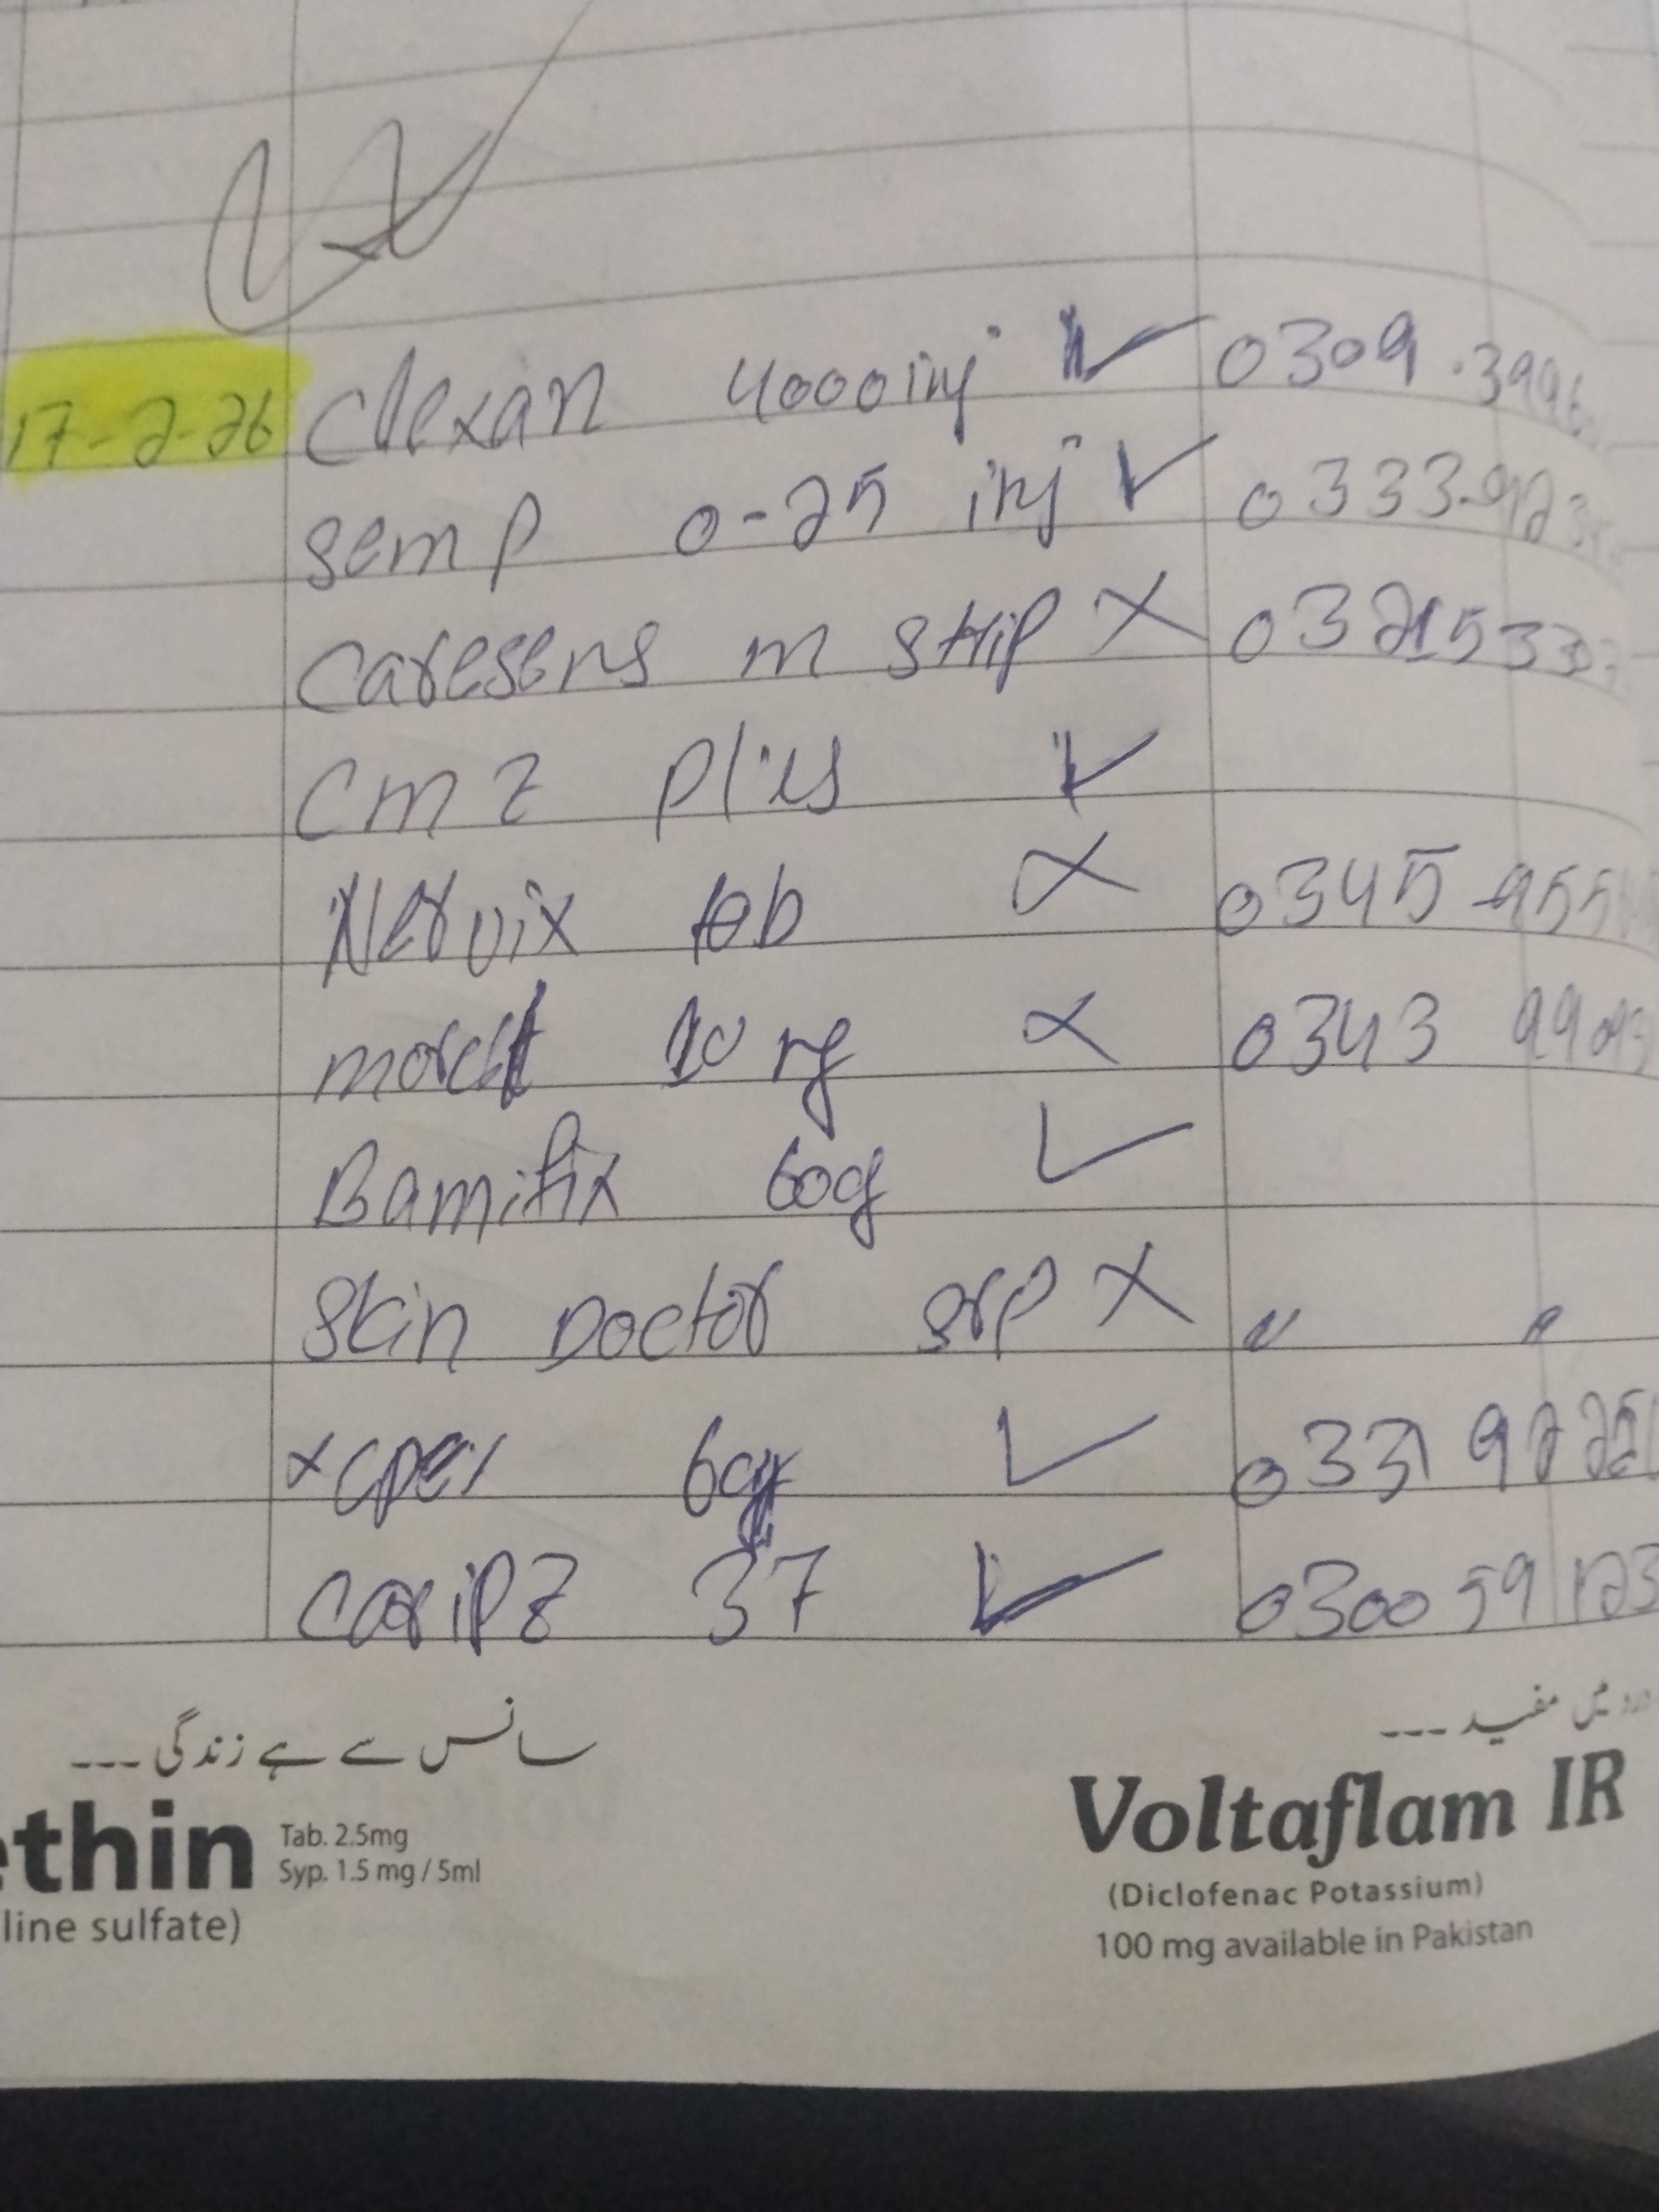 17-2-26 Clexan 4000 inj ✓ 0309.3996
semp 0-25 inj ✓ 0333-923
Caresens m strip X 03215533
Cmz plus ✓
Nervix tab X 0345-955
10 mg X 0343 990
Bamifix 60g ✓
Skin Doctor srp X " "
xcper 60g ✓ 0331 92225
CoripZ 37 ✓ 030059123
سانس سے ہے زندگی ---
درد میں مفید ---
ethin Tab. 2.5mg
Syp. 1.5 mg / 5ml
line sulfate)
Voltaflam IR
(Diclofenac Potassium)
100 mg available in Pakistan